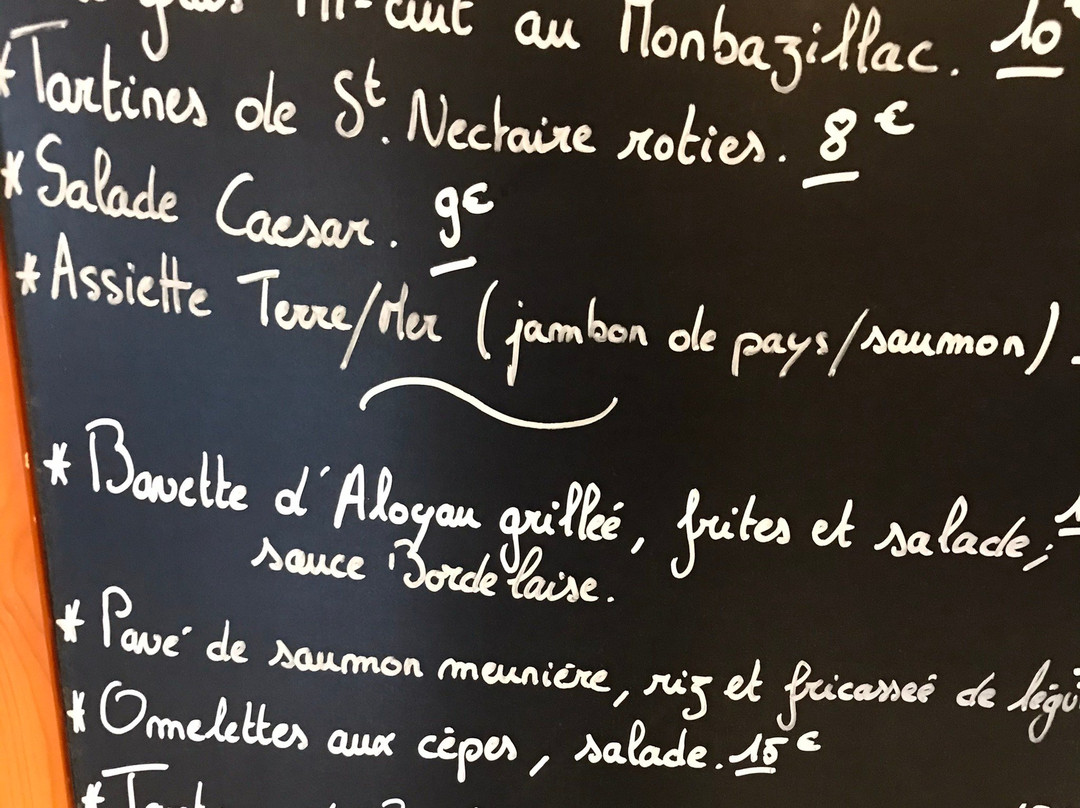 mi-cuit au Monbazillac. 10
* Tartines de St. Nectaire roties. 8€
* Salade Caesar. 9€
* Assiette Terre/Mer (jambon de pays/saumon)
* Bavette d'Aloyau grilleé, frites et salade,
sauce Bordelaise.
* Pavé de saumon meunière, riz et fricasseé de
* Omelettes aux cèpes, salade. 15€